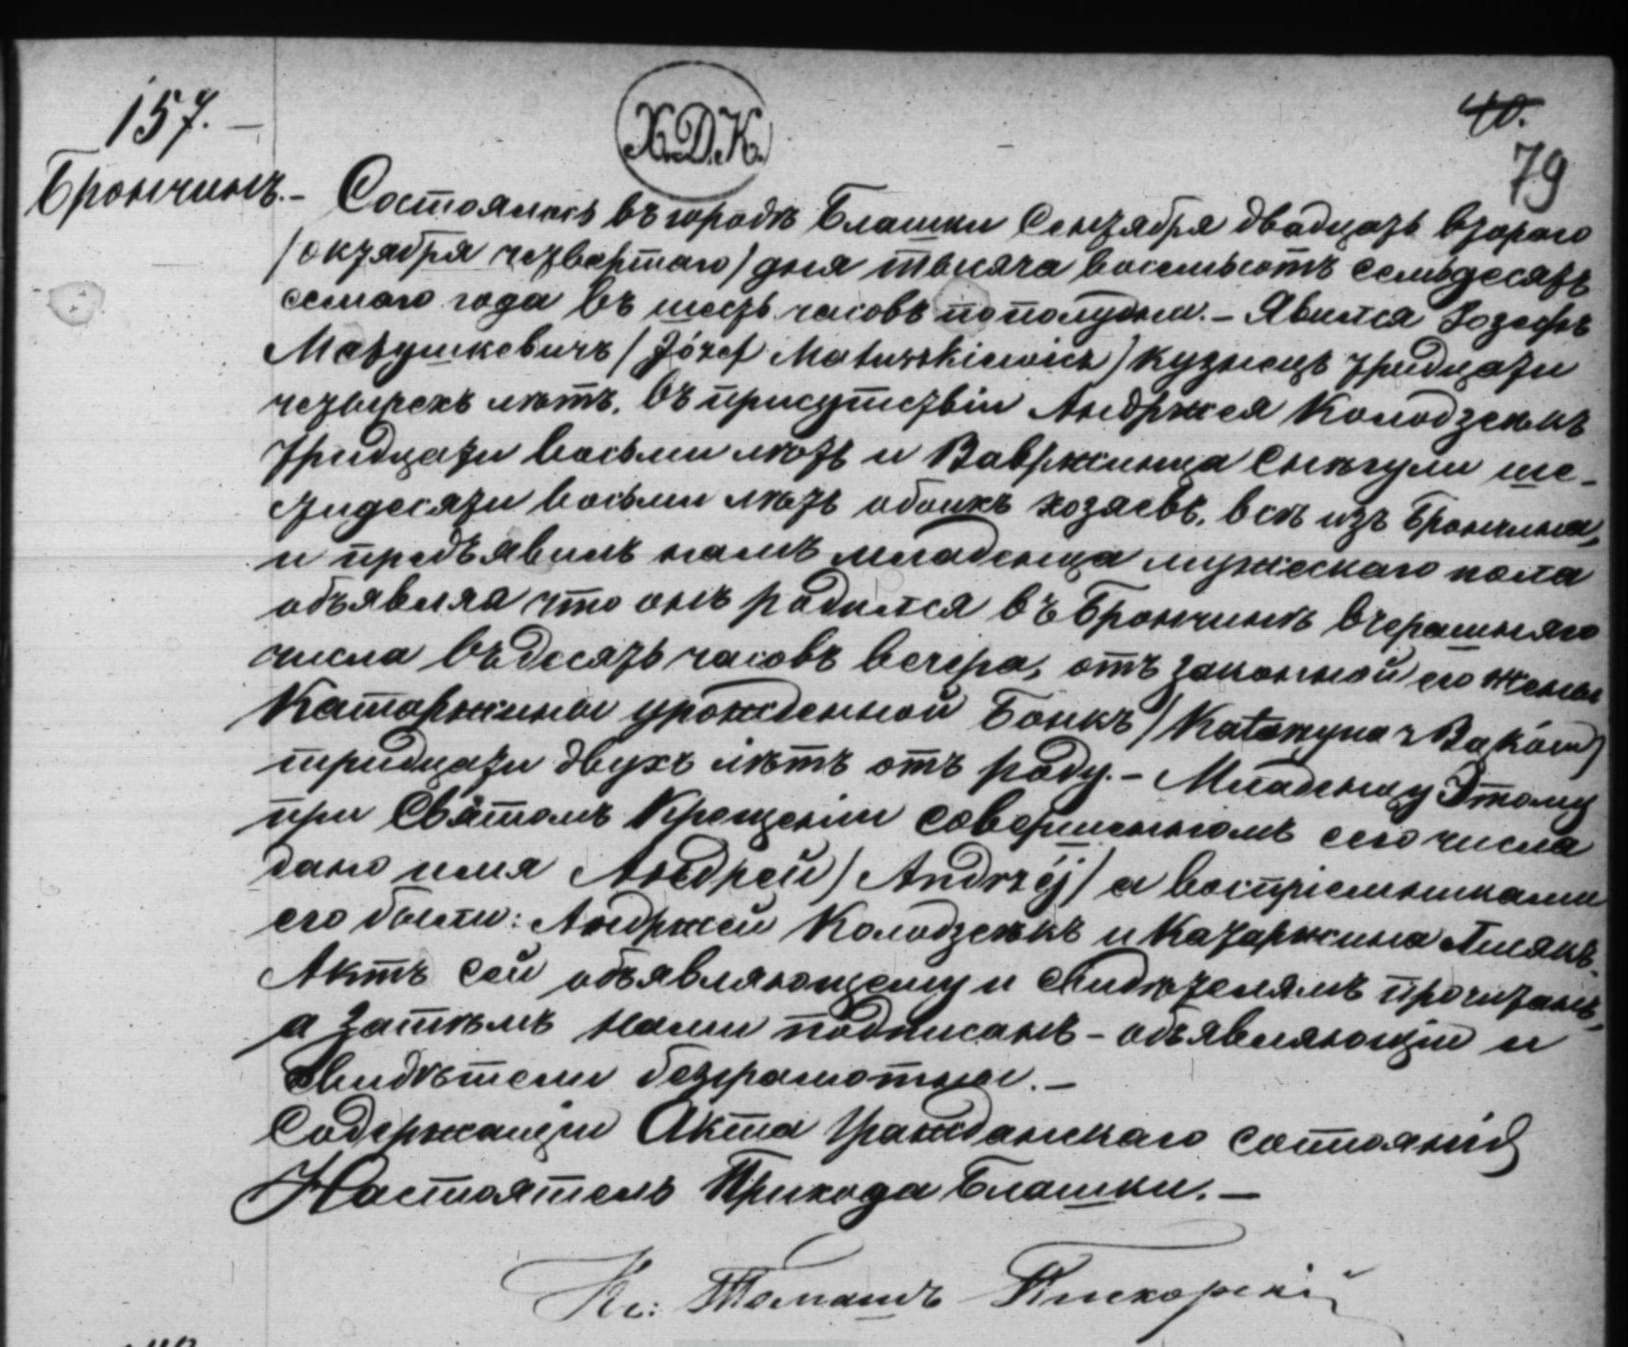 157. —
Х.Д.К.
40.
79
Брончинъ. — Состоялось въ городѣ Блашки Сентября двадцать втораго
/октября четвертаго/ дня тысяча восемьсотъ семьдесятъ
семаго года въ шесть часовъ пополудни. — Явился Іозефъ
Матушкевичъ /Józef Matuszkiewicz/ кузнецъ тридцати
четырехъ лѣтъ, въ присутствіи Андржея Колодзейкъ
тридцати восьми лѣтъ и Вавржинца ше-
стидесяти восьми лѣтъ обоихъ хозяевъ, всѣ изъ Брончина,
и предъявилъ намъ младенца мужескаго пола
объявляя что онъ родился въ Брончинѣ вчерашняго
числа въ десять часовъ вечера, отъ законной его жены
Катаржины урожденной Бонкъ /Katarzyna z Bąków/
тридцати двухъ лѣтъ отъ роду. — Младенцу Этому
при Святомъ Крещеніи совершенномъ сего числа
дано имя Андрей /Andrzéj/ а воспріемниками
его были: Андржей Колодзейкъ и Катаржина
Актъ сей объявляющему и свидѣтелямъ прочитанъ,
а затѣмъ нами подписанъ — объявляющій и
свидѣтели безграмотные. —
Содержащій Акта Гражданскаго состоянія
Настоятель Прихода Блашки. —
Кс: Томашъ Пискорскій